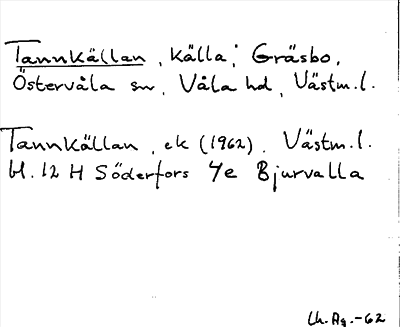 Tannkällan, källa; Gräsbo,
Östervåla sn, Våla hd, Västm.l.
Tannkällan, ek (1962). Västm.l.
bl. 12 H Söderfors 7e Bjurvalla
Lh. Ag. -62